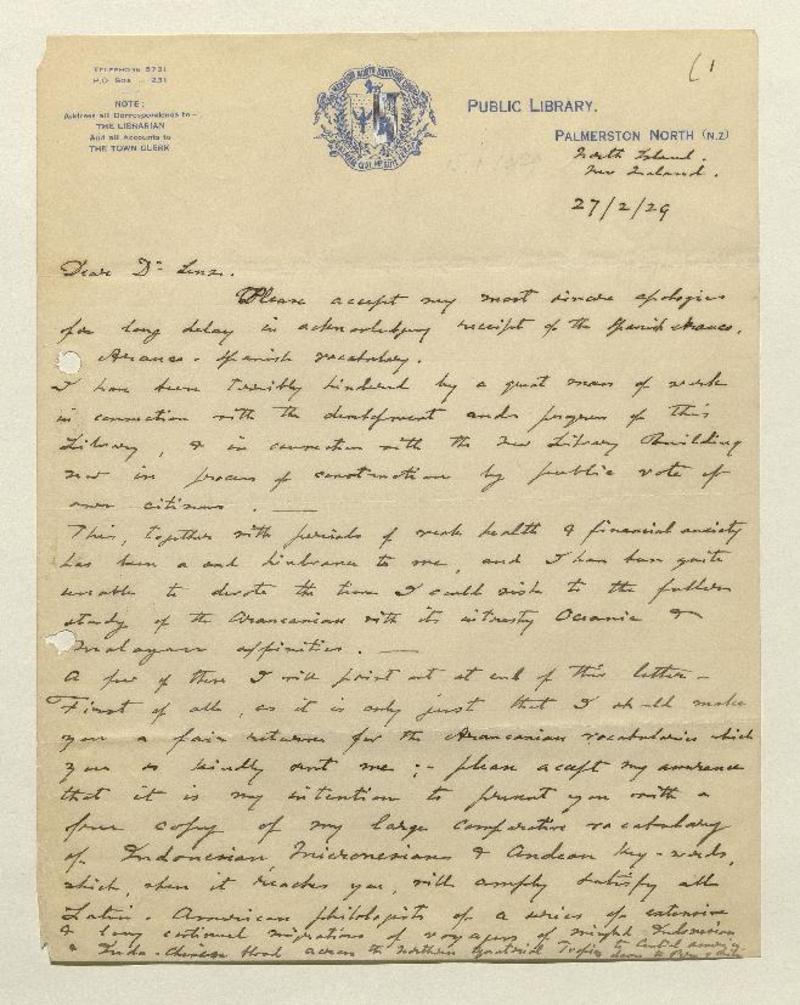 TELEPHONE 5731
P.O. Box ... 231
NOTE:
Address all Correspondence to—
THE LIBRARIAN
And all Accounts to
THE TOWN CLERK
PUBLIC LIBRARY.
PALMERSTON NORTH (N.Z)
North Island.
New Zealand.
(1
27/2/29
Dear Dr Lenz.
Please accept my most sincere apologies
for long delay in acknowledging receipt of the Spanish Arauco,
Arauco - Spanish vocabulary.
I have been terribly hindered by a great mass of work
in connection with the development and progress of this
Library, & in connection with the new Library Building
now in process of construction by public vote of
our citizens. —
This, together with periods of weak health & financial anxiety
has been a sad hindrance to me, and I have been quite
unable to devote the time I could wish to the fuller
study of the Araucanian with its Oceanic &
Malayan affinities. —
A few of these I will point out at end of this letter -
First of all, as it is only just that I should make
you a fair return for the Araucanian vocabularies which
you so kindly sent me ;- please accept my assurance
that it is my intention to present you with a
free copy of my large comparative vocabulary
of Indonesian, Micronesian & Andean key-words,
which, when it reaches you, will amply satisfy all
Latin-American philologists of a series of extensive
& long continued migrations of voyagers of mixed Indonesian
& Indo-Chinese blood across the Northern Equatorial Tropics to Central America
down to Peru & Chile